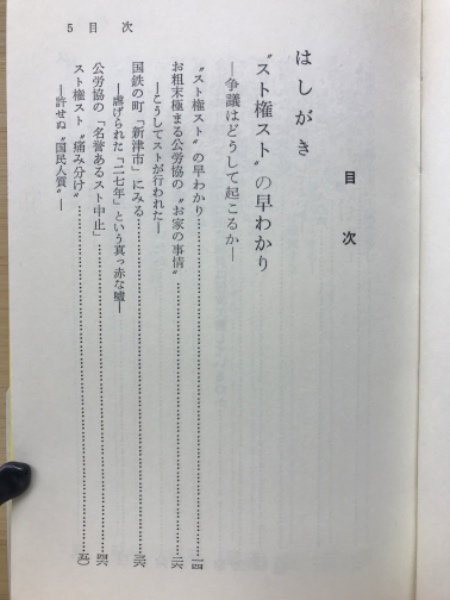 5 目次
目次
はしがき
〝スト権スト〟の早わかり
―争議はどうして起こるか―
〝スト権スト〟の早わかり……一四
お粗末極まる公労協の〝お家の事情〟……二六
―こうしてストが行われた―
国鉄の町「新津市」にみる……三六
―虐げられた「二七年」という真っ赤な嘘―
公労協の「名誉あるスト中止」……四六
スト権スト〝痛み分け〟……五〇
―許せぬ〝国民人質〟―